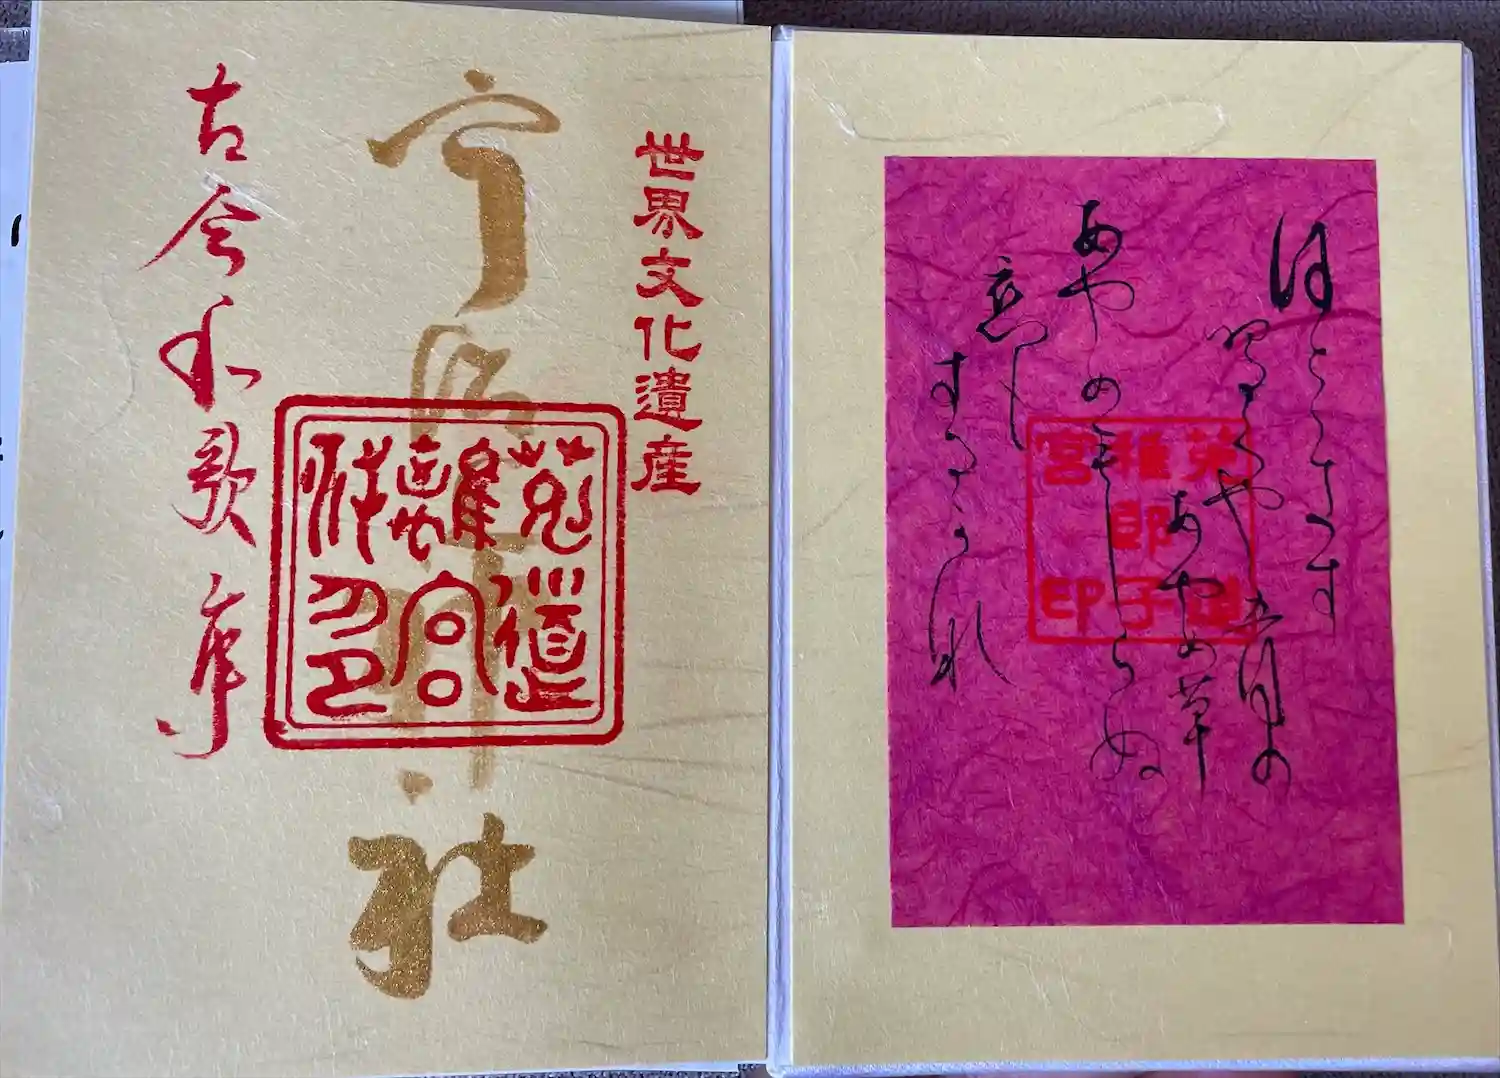 ほとゝきす
鳴くや五月の
あやめ草
あやめもしらぬ
恋も
するかな
菟道
稚郎子
宮印
世界文化遺産
宇治上神社
古今和歌集
菟道
離宮